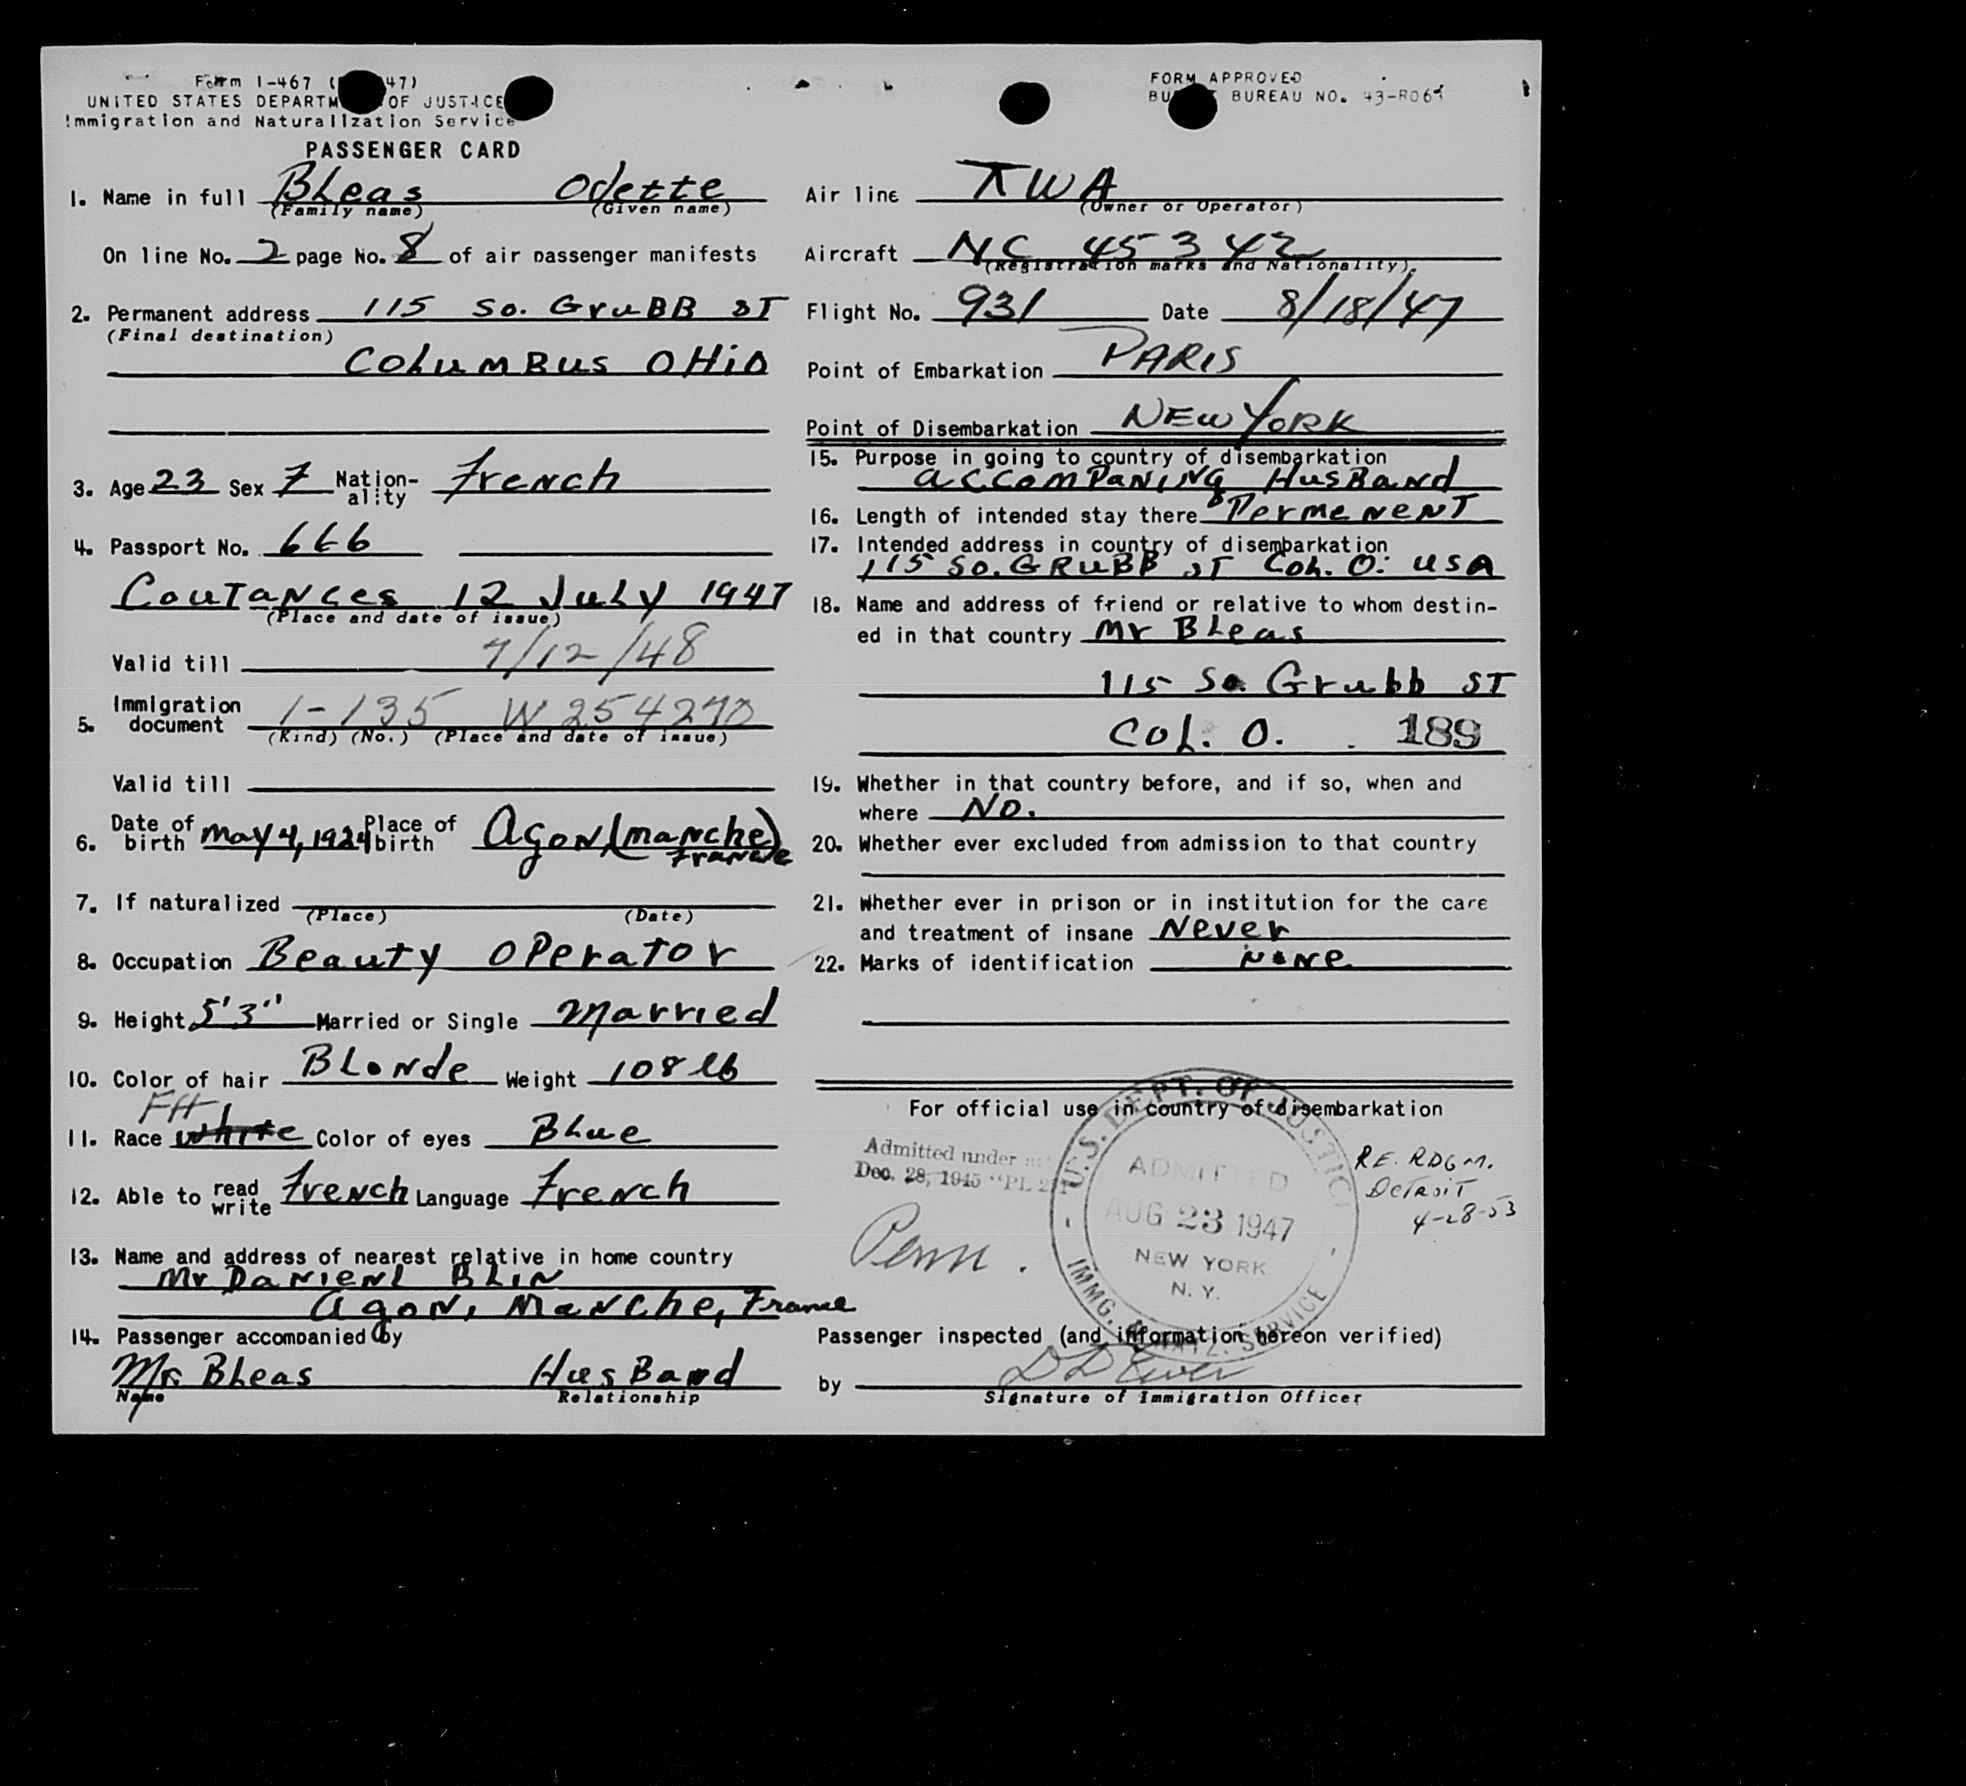 Form I-467 ( 47)
UNITED STATES DEPARTM OF JUSTICE
Immigration and Naturalization Service
PASSENGER CARD
1. Name in full Bleas Odette
(Family name) (Given name)
On line No. 2 page No. 8 of air passenger manifests
2. Permanent address 115 So. GruBB ST
(Final destination)
Columbus OHiO
3. Age 23 Sex F Nation-ality French
4. Passport No. 666
Coutances 12 July 1947
(Place and date of issue)
Valid till 7/12/48
5. Immigration document I-135 W 254270
(Kind) (No.) (Place and date of issue)
Valid till
6. Date of birth May 4, 1924 Place of birth Agon, (Manche) France
7. If naturalized
(Place) (Date)
8. Occupation Beauty Operator
9. Height 5'3" Married or Single Married
10. Color of hair Blonde Weight 108 lb
FH
11. Race White Color of eyes Blue
12. Able to read write French Language French
13. Name and address of nearest relative in home country
Mr Danienl Blin
Agon, Manche, France
14. Passenger accompanied by
Mr. Bleas HusBand
Name Relationship
FORM APPROVED
BU T BUREAU NO.
Air line TWA
(Owner or Operator)
Aircraft NC 45342
(Registration marks and Nationality)
Flight No. 931 Date 8/18/47
Point of Embarkation PARIS
Point of Disembarkation NEW YORK
15. Purpose in going to country of disembarkation
accompaning HusBand
16. Length of intended stay there Permenent
17. Intended address in country of disembarkation
115 So. GRUBB ST Col. O. USA
18. Name and address of friend or relative to whom destin-
ed in that country Mr Bleas
115 So. Grubb ST
Col. O. 189
19. Whether in that country before, and if so, when and
where No.
20. Whether ever excluded from admission to that country
21. Whether ever in prison or in institution for the care
and treatment of insane Never
22. Marks of identification None
For official use in country of disembarkation
Admitted under
Dec. 28, 1945 "PL
Perm.
U.S. DEPT. OF JUSTICE
ADMITTED
AUG 23 1947
NEW YORK
N. Y.
IMMG. & NATZ. SERVICE
RE. RDGM.
Detroit
4-28-53
Passenger inspected (and information hereon verified)
by
Signature of Immigration Officer